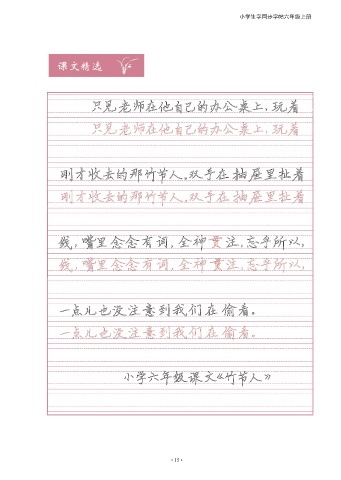 小学生字同步字帖六年级上册
课文精选
只见老师在他自己的办公桌上,玩着
只见老师在他自己的办公桌上,玩着
刚才收去的那竹节人。双手在抽屉里扯着
刚才收去的那竹节人。双手在抽屉里扯着
线,嘴里念念有词,全神贯注,忘乎所以,
线,嘴里念念有词,全神贯注,忘乎所以,
一点儿也没注意到我们在偷看。
一点儿也没注意到我们在偷看。
小学六年级课文《竹节人》
·15·